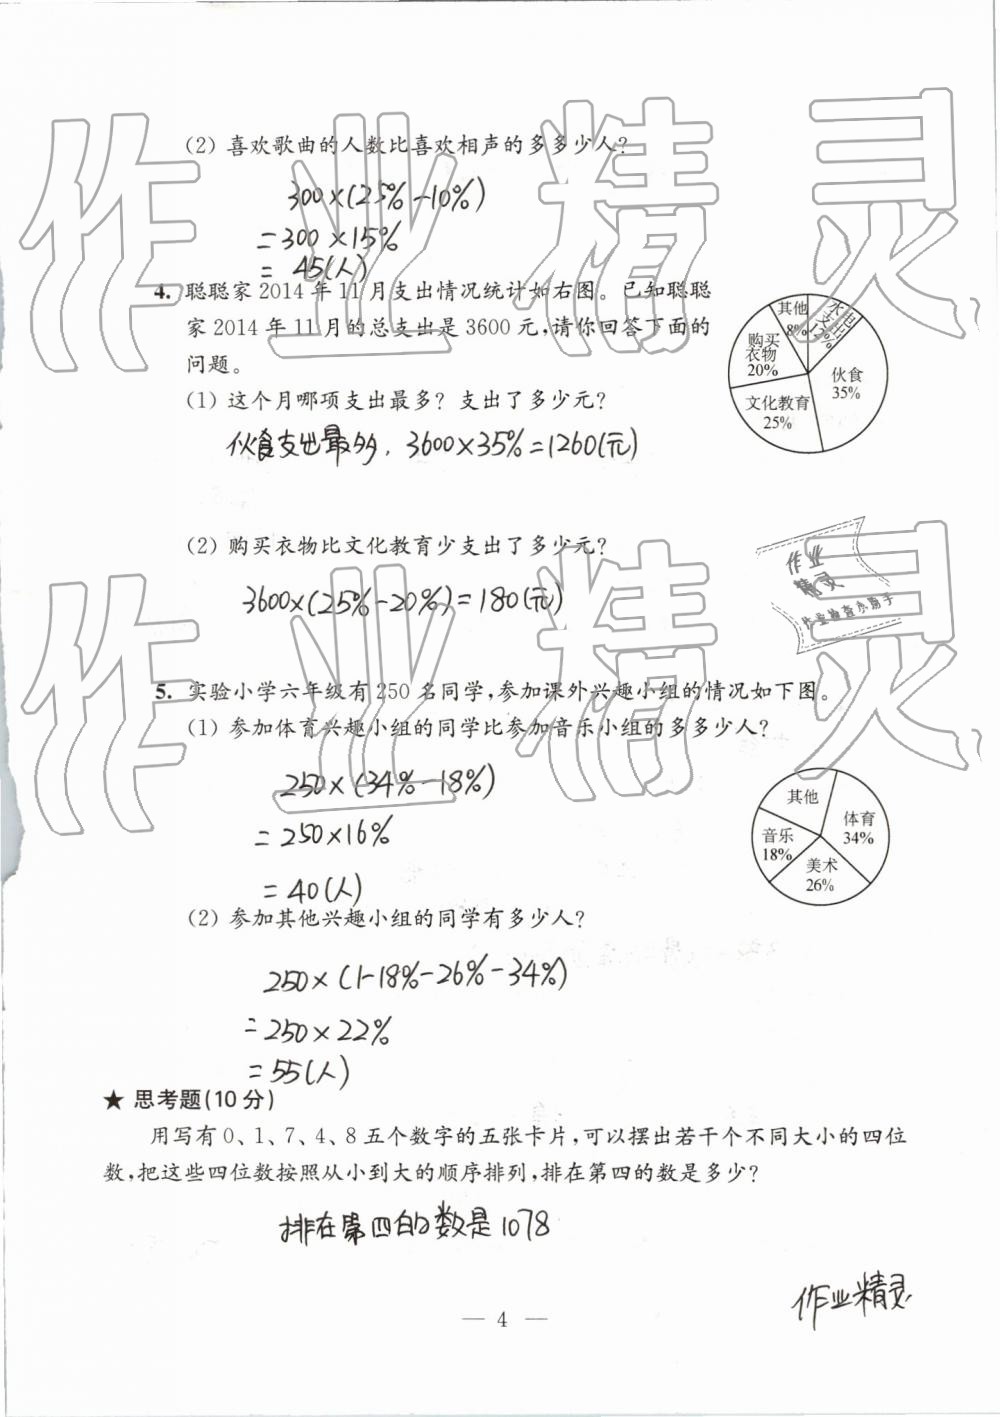 (2) 喜欢歌曲的人数比喜欢相声的多多少人?
300×(25%-10%)
=300×15%
= 45(人)
4. 聪聪家2014年11月支出情况统计如右图。已知聪聪
家2014年11月的总支出是3600元,请你回答下面的
问题。
其他
8%
水电
支出
12%
购买
衣物
20%
伙食
35%
文化教育
25%
(1) 这个月哪项支出最多? 支出了多少元?
伙食支出最多, 3600×35%=1260(元)
(2) 购买衣物比文化教育少支出了多少元?
3600×(25%-20%)=180(元)
作业
精灵
5. 实验小学六年级有250名同学,参加课外兴趣小组的情况如下图。
(1) 参加体育兴趣小组的同学比参加音乐小组的多多少人?
250×(34%-18%)
=250×16%
=40(人)
其他
体育
34%
音乐
18%
美术
26%
(2) 参加其他兴趣小组的同学有多少人?
250×(1-18%-26%-34%)
=250×22%
=55(人)
★ 思考题(10分)
用写有0、1、7、4、8五个数字的五张卡片,可以摆出若干个不同大小的四位
数,把这些四位数按照从小到大的顺序排列,排在第四的数是多少?
排在第四的数是1078
作业精灵
— 4 —
作业精灵
作业精灵